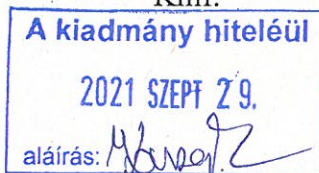 A kiadmány hiteléül
2021 SZEPT 29.
aláírás: